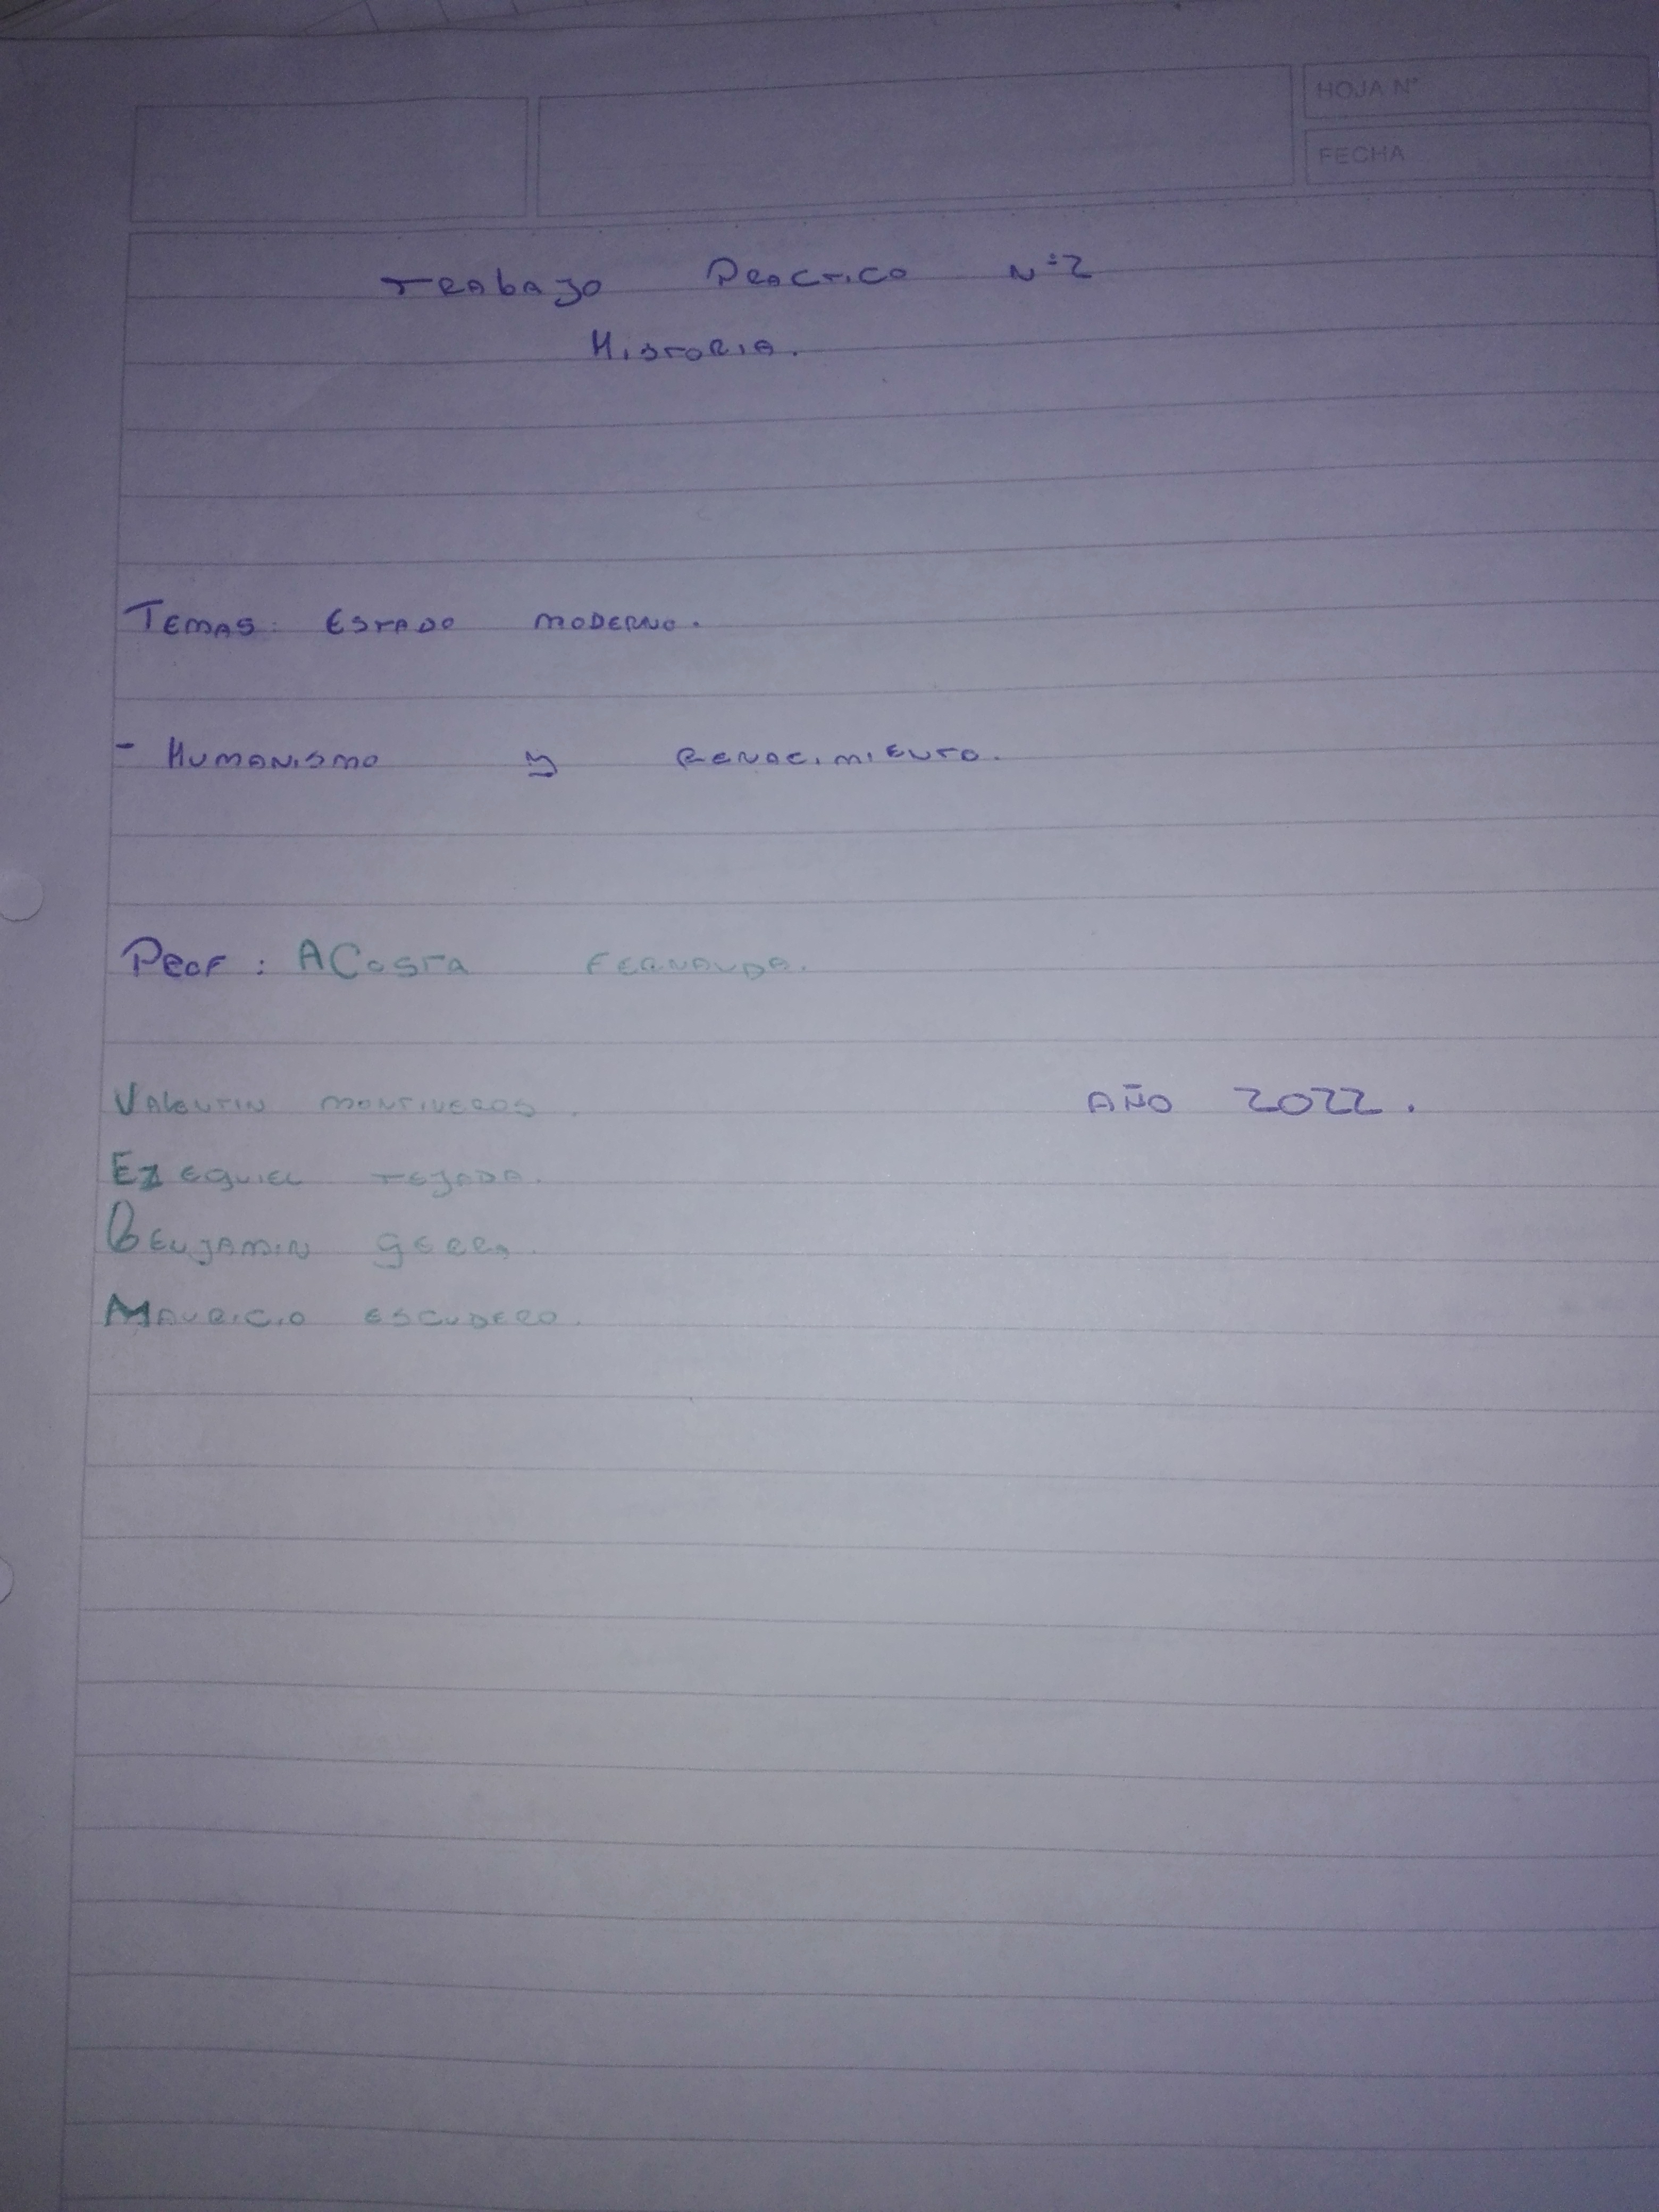 HOJA N°
FECHA
TRAbAJO PRACTICO N°2
HISTORIA.
TEMAS: ESTADO MODERNO.
- HUMANISMO y RENACIMIENTO.
PROF: ACOSTA FERNANDA.
VALENTIN MONTIVEROS. AÑO 2022.
EZEQUIEL TEJADA.
BENJAMIN
MAURICIO ESCUDERO.